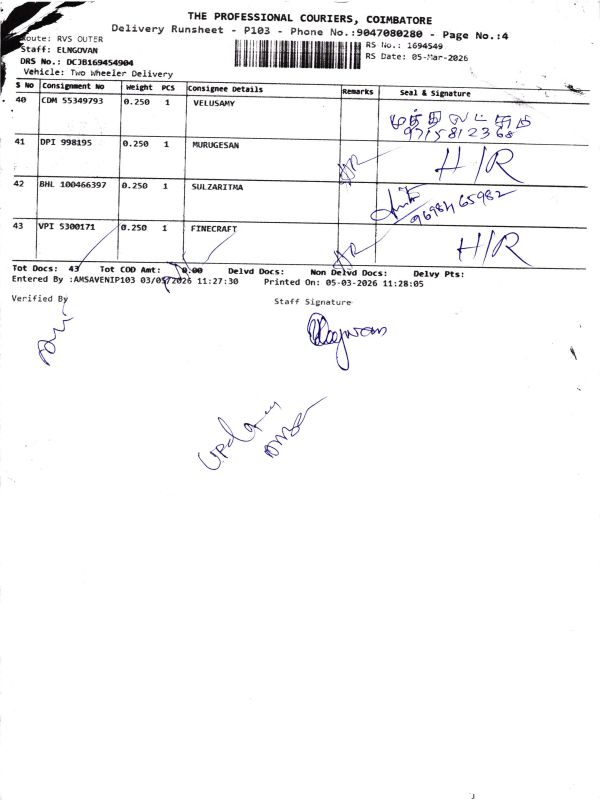 THE PROFESSIONAL COURIERS, COIMBATORE
Delivery Runsheet - P103 - Phone No.:9047080280 - Page No.:4
Route: RVS OUTER
RS No.: 1694549
Staff: ELNGOVAN
RS Date: 05-Mar-2026
DRS No.: DCJB169454904
Vehicle: Two Wheeler Delivery
S No Consignment No Weight PCS Consignee Details Remarks Seal & Signature
40 CDM 55349793 0.250 1 VELUSAMY
9715812368
41 DPI 998195 0.250 1 MURUGESAN H/R
42 BHL 100466397 0.250 1 SULZARITMA
9698465982
43 VPI 5300171 0.250 1 FINECRAFT H/R
Tot Docs: 43 Tot COD Amt: 0.00 Delvd Docs: Non Delvd Docs: Delvy Pts:
Entered By :AMSAVENIP103 03/05/2026 11:27:30 Printed On: 05-03-2026 11:28:05
Verified By Staff Signature